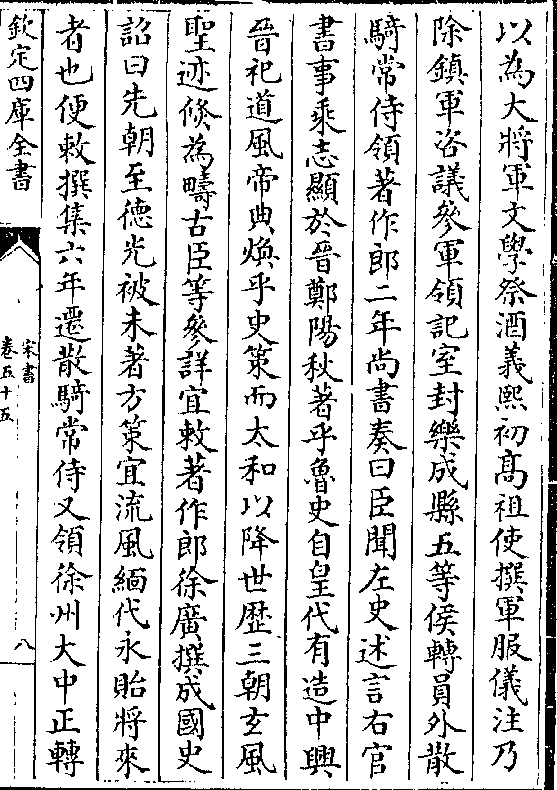 以為大將軍文學祭酒義熙初髙祖使撰軍服儀注乃
除鎮軍咨議參軍領記室封樂成縣五等侯轉員外散
騎常侍領著作郎二年尚書奏曰臣聞左史述言右官
書事乘志顯於晉鄭陽秋著乎魯史自皇代有造中興
晉祀道風帝典煥乎史策而太和以降世歴三朝玄風
聖迹倐為疇古臣等參詳宜敕著作郎徐廣撰成國史
詔曰先朝至德光被未著方策宜流風緬代永貽將來
者也便敕撰集六年遷散騎常侍又領徐州大中正轉
欽定四庫全書
宋書
卷五十五
八